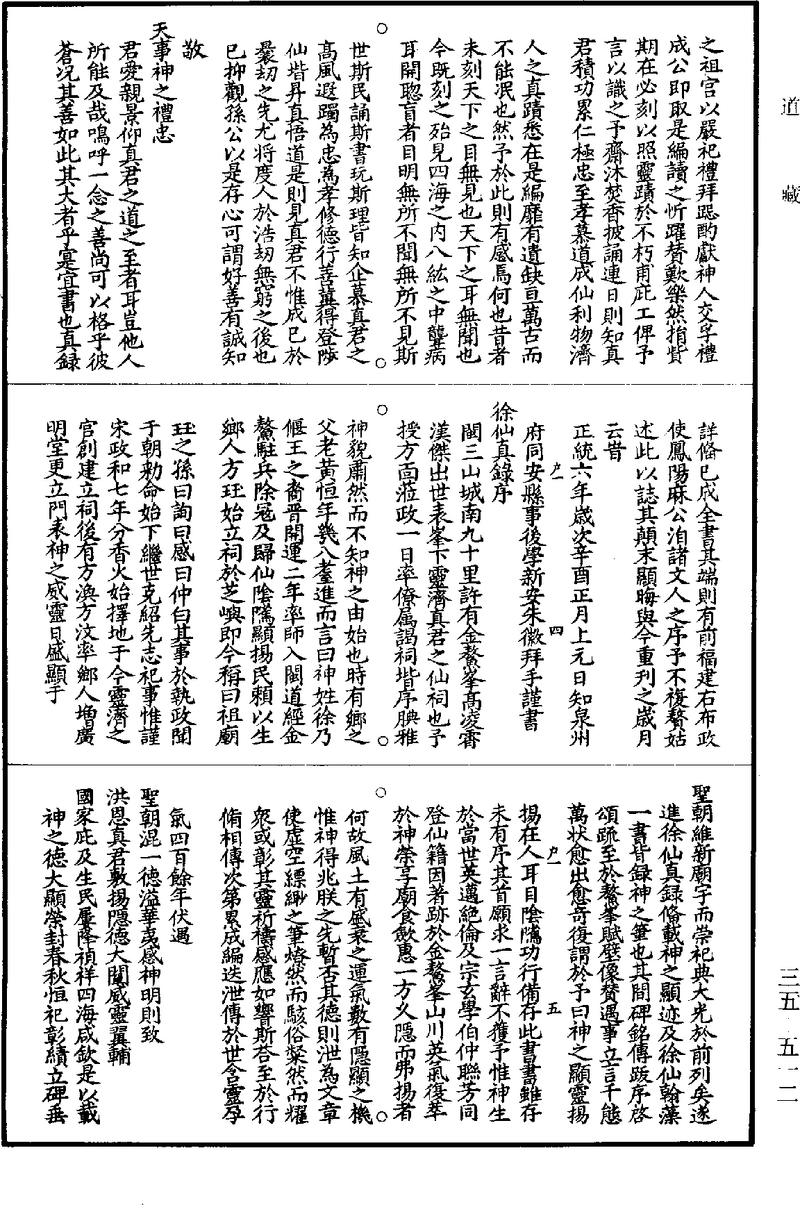 道藏
三五　五一二
之祖宫以嚴祀禮拜跽酌獻神人交孚禮
成公即取是編讀之忻躍贊歎樂然指貲
期在必刻以照靈蹟於不朽甫庀工俾予
言以識之予齋沐焚香披誦連日則知真
君積功累仁極忠至孝慕道成仙利物濟
人之真蹟悉在是編靡有遺缺亘萬古而
不能泯也然予於此則有感焉何也昔者
未刻天下之目無見也天下之耳無聞也
今既刻之殆見四海之内八紘之中聾病
耳開聦盲者目明無所不聞無所不見斯
世斯民誦斯書玩斯理皆知企慕真君之
高風遐躅為忠為孝修德行善冀得登陟
仙堦昇真悟道是則見真君不惟成已於
曩劫之先尤将度人於浩劫無窮之後也
已抑觀孫公以是存心可謂好善有誠知
敬
天事神之禮忠
君愛親景仰真君之道之至者耳豈他人
所能及哉嗚呼一念之善尚可以格乎彼
蒼况其善如此其大者乎寔宜書也真録
詳俻已成全書其端則有前福建右布政
使鳳陽麻公洎諸文人之序予不復贅姑
述此以誌其顛末顯晦與今重刋之歲月
云旹
正統六年歲次辛酉正月上元日知泉州
府同安縣事後學新安朱徽拜手謹書
徐仙真録序
閩三山城南九十里許有金鰲峯高凌霄
漢傑出世表峯下靈濟真君之仙祠也予
授方面蒞政一日率僚属謁祠堦序腆雅
神貌肅然而不知神之由始也時有鄉之
父老黄恒年幾八耋進而言曰神姓徐乃
偃王之裔晋開運二年率師入閩道經金
鰲駐兵除冦及歸仙陰隲顯揚民頼以生
鄉人方珏始立祠於芝嶼即今稱曰祖廟
珏之孫曰詢曰感曰仲白其事於執政聞
于朝勑命始下繼世克紹先志祀事惟謹
宋政和七年分香火始擇地于今靈濟之
官創建立祠後有方渙方汶率鄉人増廣
明堂更立門表神之威靈日盛顯于
聖朝維新廟宇而崇祀典大光於前列矣遂
進徐仙真録俻載神之顯迹及徐仙翰藻
一書皆録神之筆也其間碑銘傳跋序啓
頌疏至於鰲峯賦壁像賛遇事立言千態
萬状愈出愈奇復謂於予曰神之顯靈揚
揚在人耳目陰隲功行備存此書書雖存
未有序其首願求一言辭不獲予惟神生
於當世英邁絶倫及宗玄學伯仲聯芳同
登仙籍因著跡於金鰲峯山川英氣復萃
於神榮享廟食歆惠一方乂隠而弗揚者
何故風土有盛衰之運氣數有隠顯之機
惟神得兆朕之先暫否其德則泄為文章
使虚空縹緲之筆燎然而駭俗粲然而耀
衆或彰其靈祈禱感應如響斯荅至於行
脩相傳次第累成編迭泄傳於世含靈孕
氣四百餘年伏遇
聖朝混一德溢華夷感神明則致
洪恩真君敷揚隠德大闡威靈翼輔
國家庇及生民屢降禎祥四海咸欽是以載
神之德大顯榮封春秋恒祀彰績立碑垂
四
五